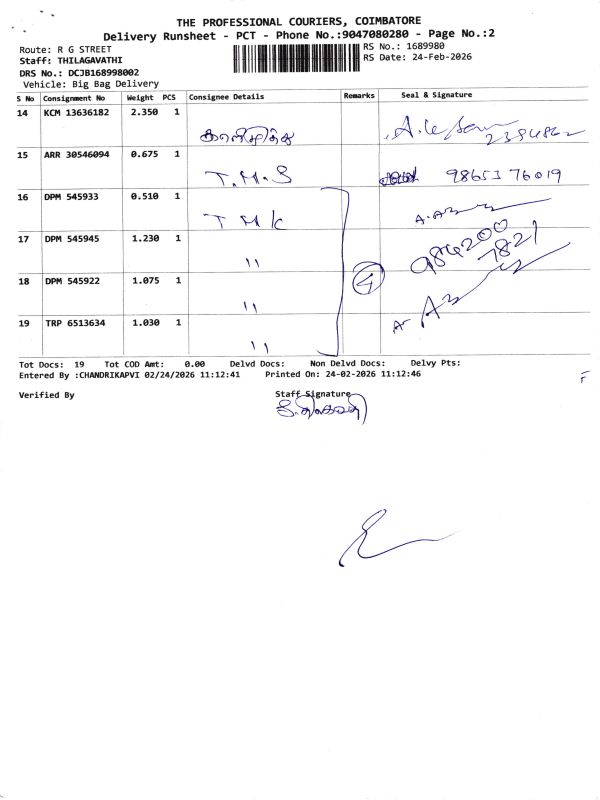 THE PROFESSIONAL COURIERS, COIMBATORE
Delivery Runsheet - PCT - Phone No.:9047080280 - Page No.:2
Route: R G STREET
RS No.: 1689980
Staff: THILAGAVATHI
RS Date: 24-Feb-2026
DRS No.: DCJB168998002
Vehicle: Big Bag Delivery
S No Consignment No Weight PCS Consignee Details Remarks Seal & Signature
14 KCM 13636182 2.350 1
15 ARR 30546094 0.675 1
T.M.S 98653 76019
16 DPM 545933 0.510 1
T M K
17 DPM 545945 1.230 1
984200
7821
"
18 DPM 545922 1.075 1
4
"
19 TRP 6513634 1.030 1
"
Tot Docs: 19 Tot COD Amt: 0.00 Delvd Docs: Non Delvd Docs: Delvy Pts:
Entered By :CHANDRIKAPVI 02/24/2026 11:12:41 Printed On: 24-02-2026 11:12:46
Verified By Staff Signature